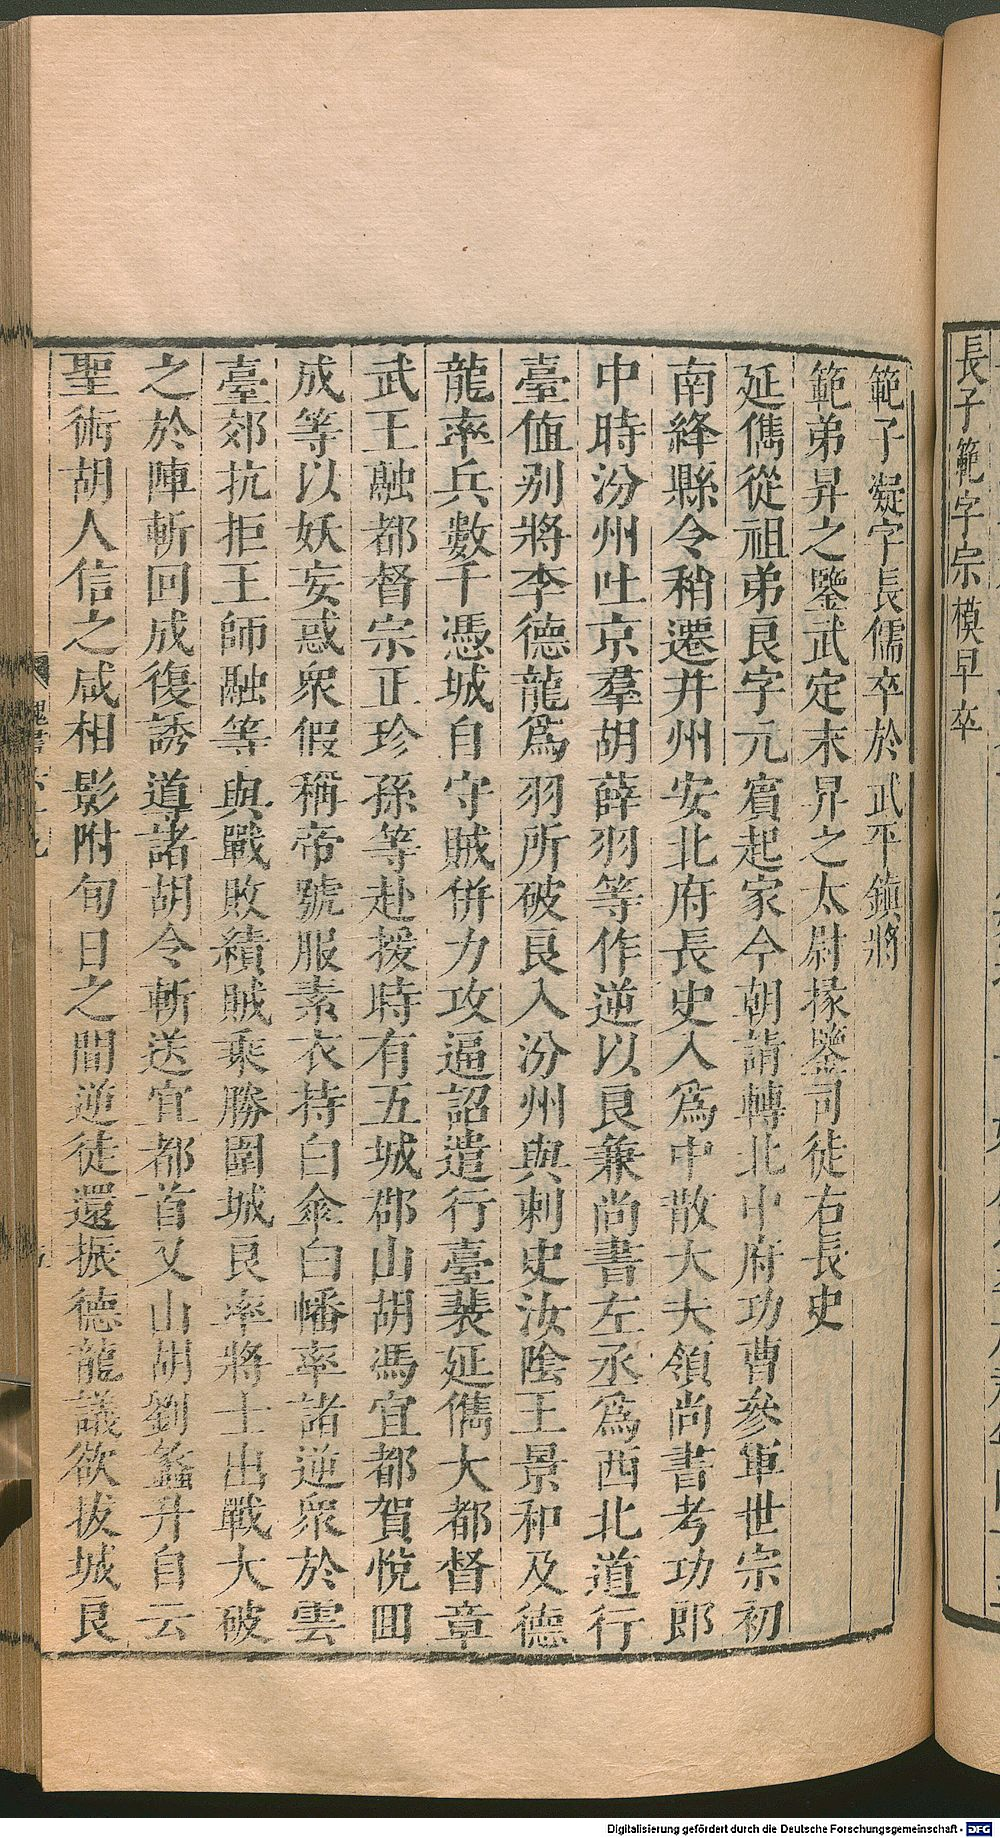 長子範字宗模早卒
範子凝字長儒卒於武平鎮將
範弟昇之鑒武定末昇之太尉掾鑒司徒右長史
延儁從祖弟良字元賓起家今朝請轉北中府功曹參軍世宗初
南絳縣令稍遷并州安北府長史入爲中散大夫領尚書考功郎
中時汾州吐京羣胡薛羽等作逆以良兼尚書左丞爲西北道行
臺值别將李德龍爲羽所破良入汾州與刺史汝陰王景和及德
龍率兵數千憑城自守賊併力攻逼詔遣行臺裴延儁大都督章
武王融都督宗正珍孫等赴援時有五城郡山胡馮宜都賀悅回
成等以妖妄惑衆假稱帝號服素衣持白傘白幡率諸逆衆於雲
臺郊抗拒王師融等與戰敗績賊乘勝圍城良率將士出戰大破
之於陣斬回成復誘導諸胡令斬送宜都首又山胡劉蠡升自云
聖術胡人信之咸相影附旬日之間逆徒還振德龍議欲拔城良
Digitalisierung gefördert durch die Deutsche Forschungsgemeinschaft - DFG